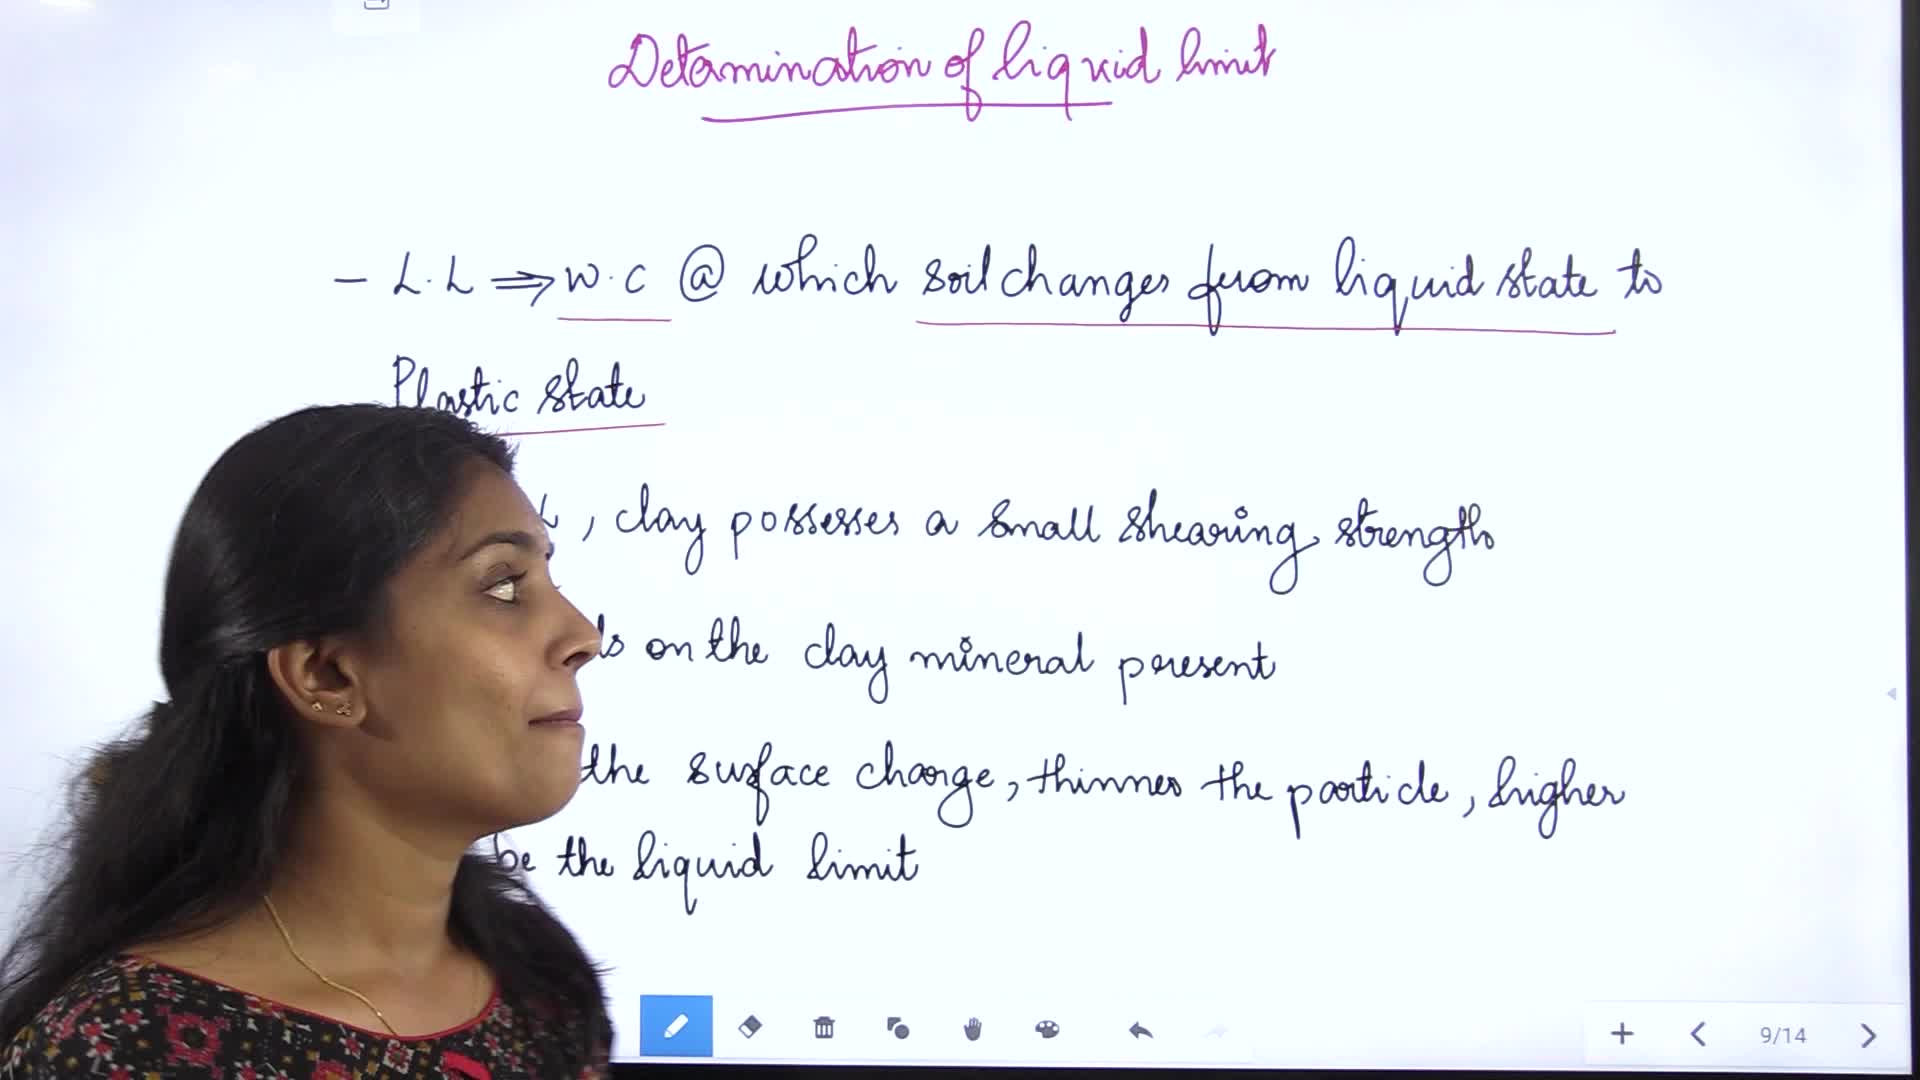 Determination of liquid limit
- L.L ⇒ W.C @ which soil changes from liquid state to
Plastic state
, clay possesses a small shearing strength
on the clay mineral present
the surface charge, thinner the particle, higher
be the liquid limit
9/14